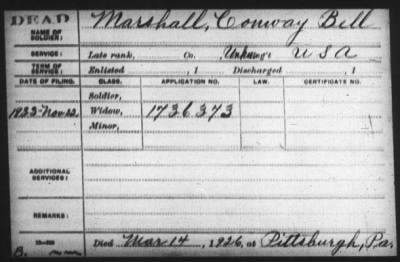 DEAD Marshall, Conway Bell
NAME OF SOLDIER:
SERVICE: Late rank, Co. , U S A
TERM OF SERVICE: Enlisted , 1 Discharged , 1
DATE OF FILING. CLASS. APPLICATION NO. LAW. CERTIFICATE NO.
Soldier,
1923-Nov-22 Widow, 1736373
Minor,
ADDITIONAL SERVICES:
REMARKS:
Died Mar 14, 1926, at Pittsburgh, Pa.
B.